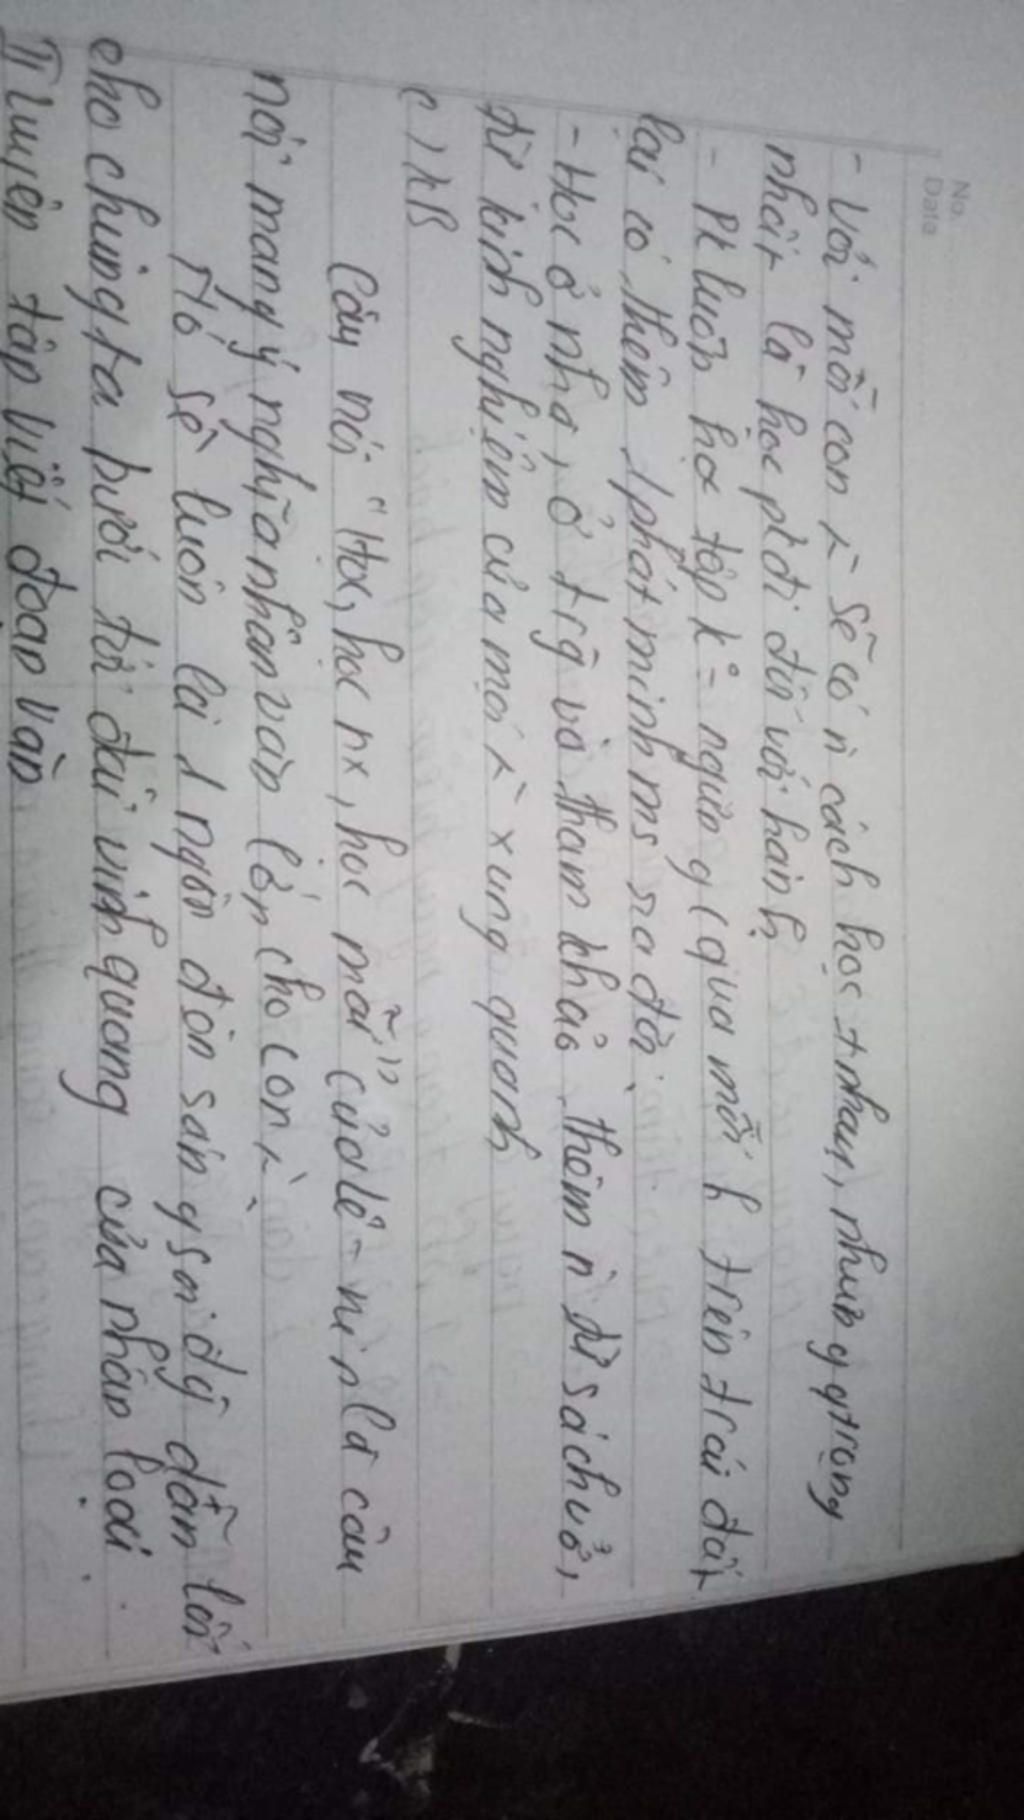 No.
Date
- Với mỗi con ̀ sẽ có ǹ cách học # nhau, nhưng qtrọng
nhất là học p' đi đôi với hành
- Pk luôn học tập k° = ngừng (qua mỗi h trên trái đất
lại có thêm 1 phát minh ms ra đời.
- Học ở nhà, ở trg và tham khảo thêm ǹ từ sách vở,
từ kinh nghiệm của mọi ̀ xung quanh
c) KB
Câu nói "Học, học nx, học mãi" của Lê-nin là câu
nói mang ý nghĩa nhân văn lớn cho con ̀
Nó sẽ luôn là 1 ngọn đèn sáng soi đg dẫn lối
cho chúng ta bước tới đài vinh quang của nhân loại.
II Luyện tập viết đoạn văn